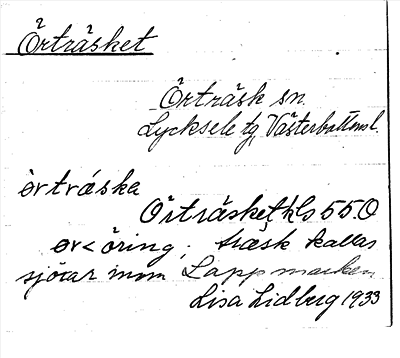 Örträsket
Örträsk sn.
Lycksele tg, Västerbottens l.
ørtræska
Örträsket, kls 550
ør < öring; træsk kallas
sjöar inom Lappmarken
Lisa Lidberg 1933